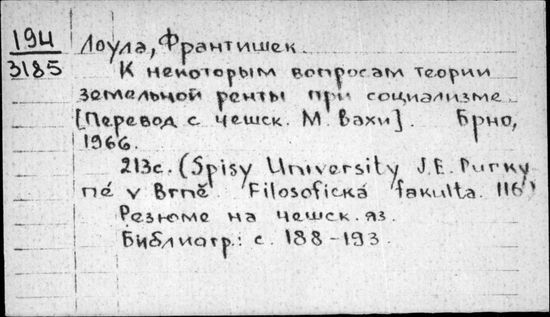 194
3185
Лоула, Франтишек.
К некоторым вопросам теории
земельной ренты при социализме.
[Перевод с чешск. М. Вахи]. Брно,
1966.
213с. (Spisy University J.E. Purky
né v Brně. Filosofická fakulta. 116)
Резюме на чешск. яз.
Библиогр.: с. 188-193.